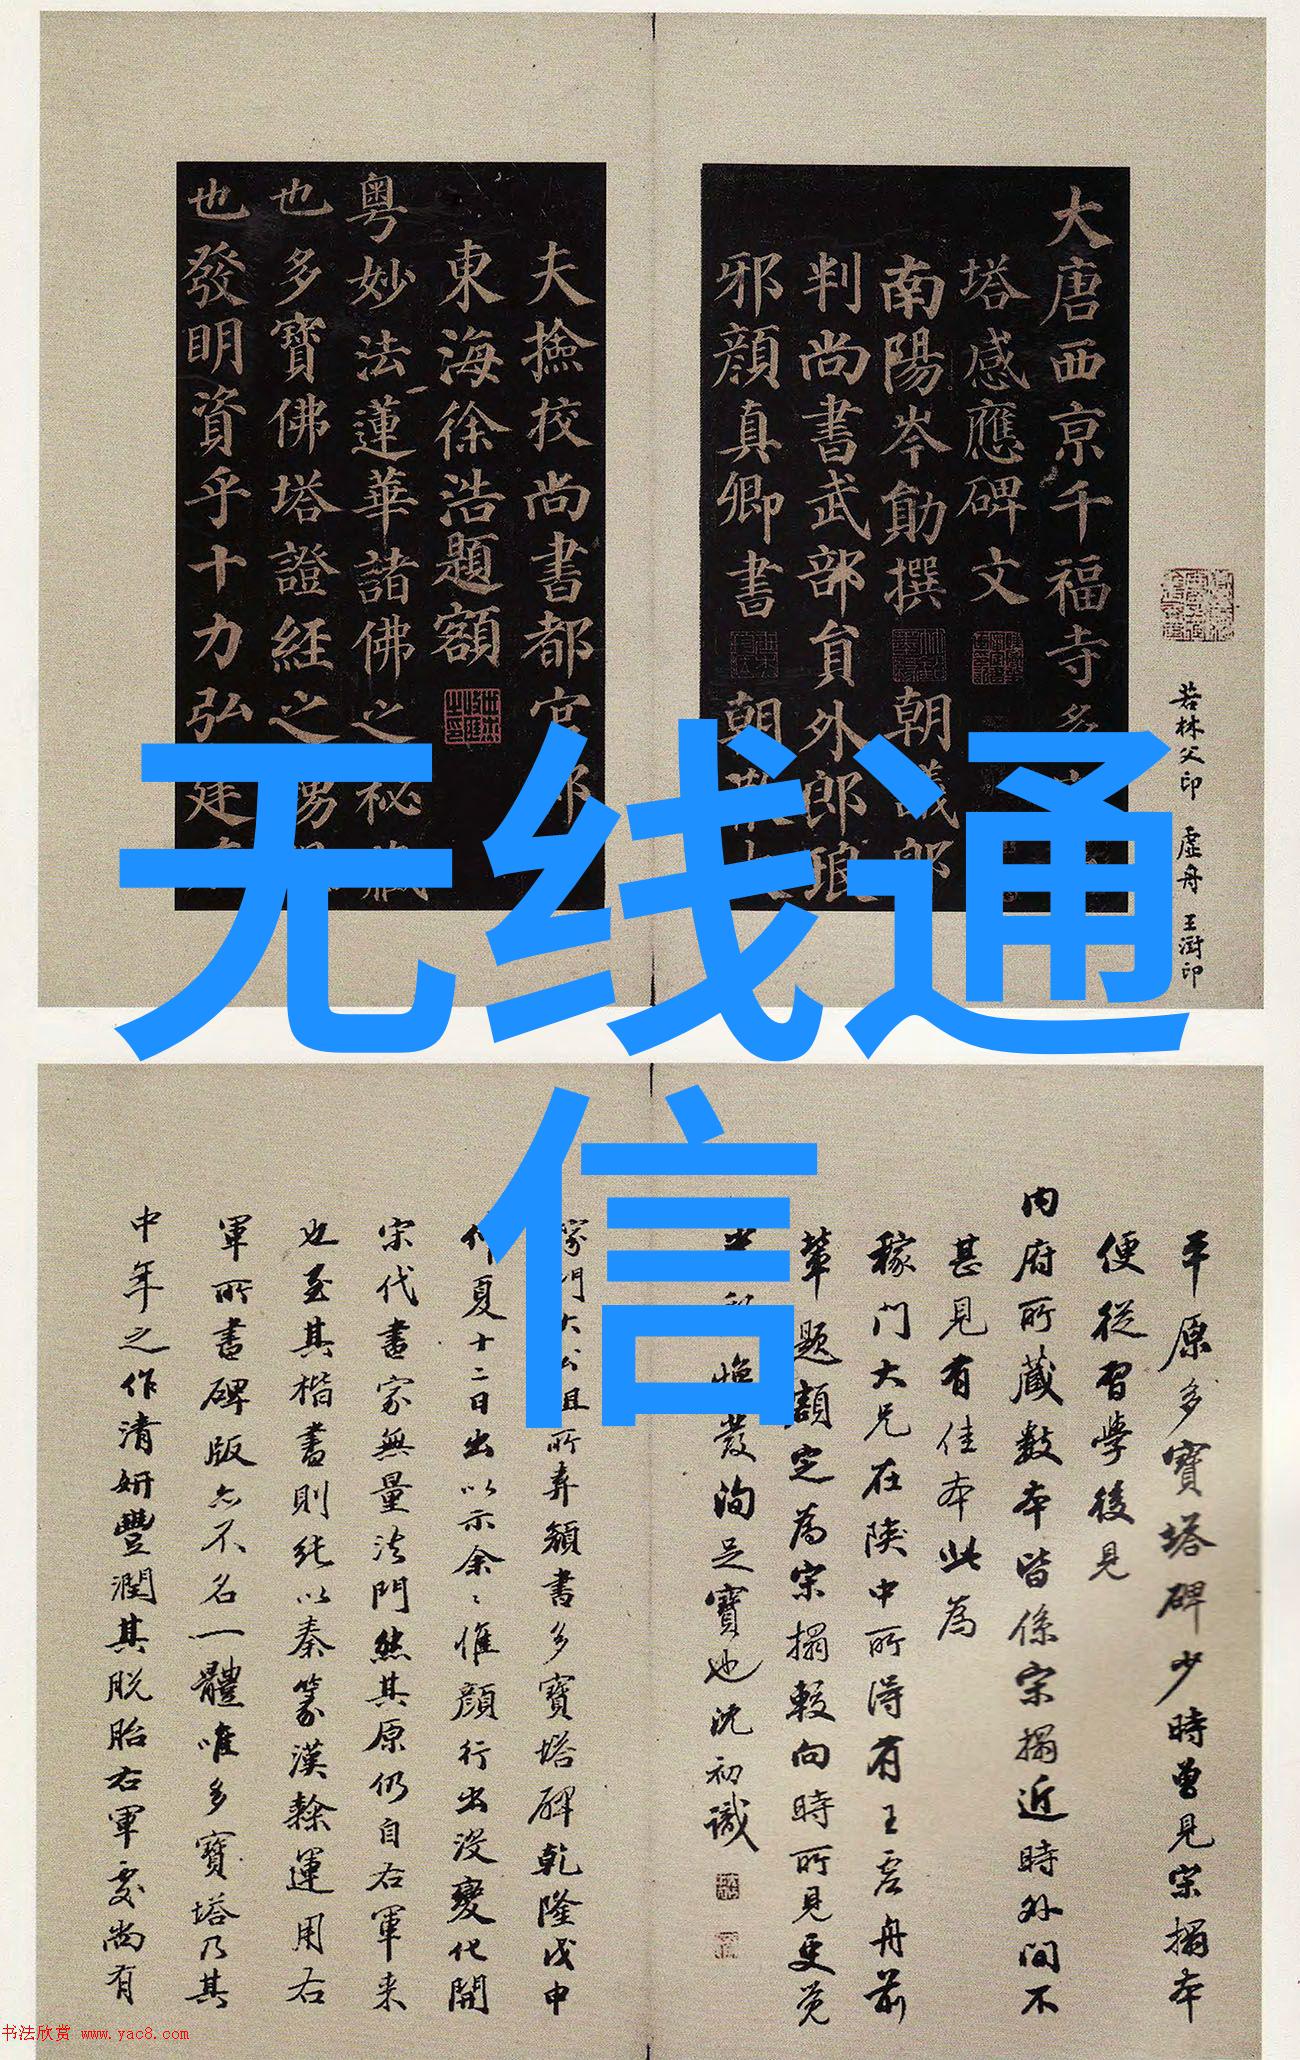 大唐西京千福寺多
塔感應碑文
南陽岑勛撰
朝議郎
判尚書武部員外郎琅
邪顏真卿書
朝
夫撿挍尚書都官郎
東海徐浩題額
粵妙法蓮華諸佛之秘藏
也多寶佛塔證經之踴現
也發明資乎十力弘建
若林父印 虛舟 王澍印
无线通
信
平原多寶塔碑少時曾見宋搨本
便從習學後見
內府所藏數本皆係宋搨近時外間不
甚見有佳本此為
稼門大兄在陝中所得有王虛舟前
輩題額定為宋搨較向時所見更覺
發洵足寶也沈初識
門大公祖所弆額書多寶塔碑乾隆戊申
仲夏十二日出以示余〻惟顏行出沒變化開
宋代書家無量法門然其原仍自右軍来
也至其楷書則純以秦篆漢隸運用右
軍所書碑版亦不名一體唯多寶塔乃其
中年之作清妍豐潤其脫胎右軍處尚有
书法欣赏 www.yac8.com